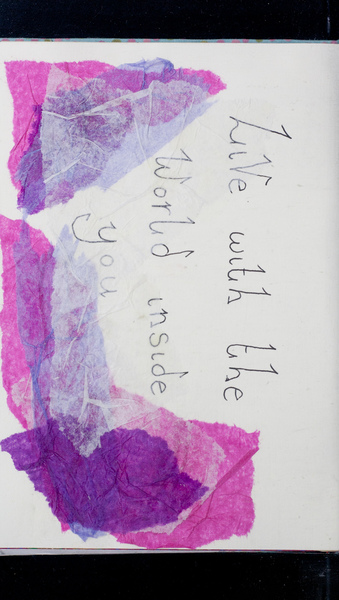 Live with the
World inside
you